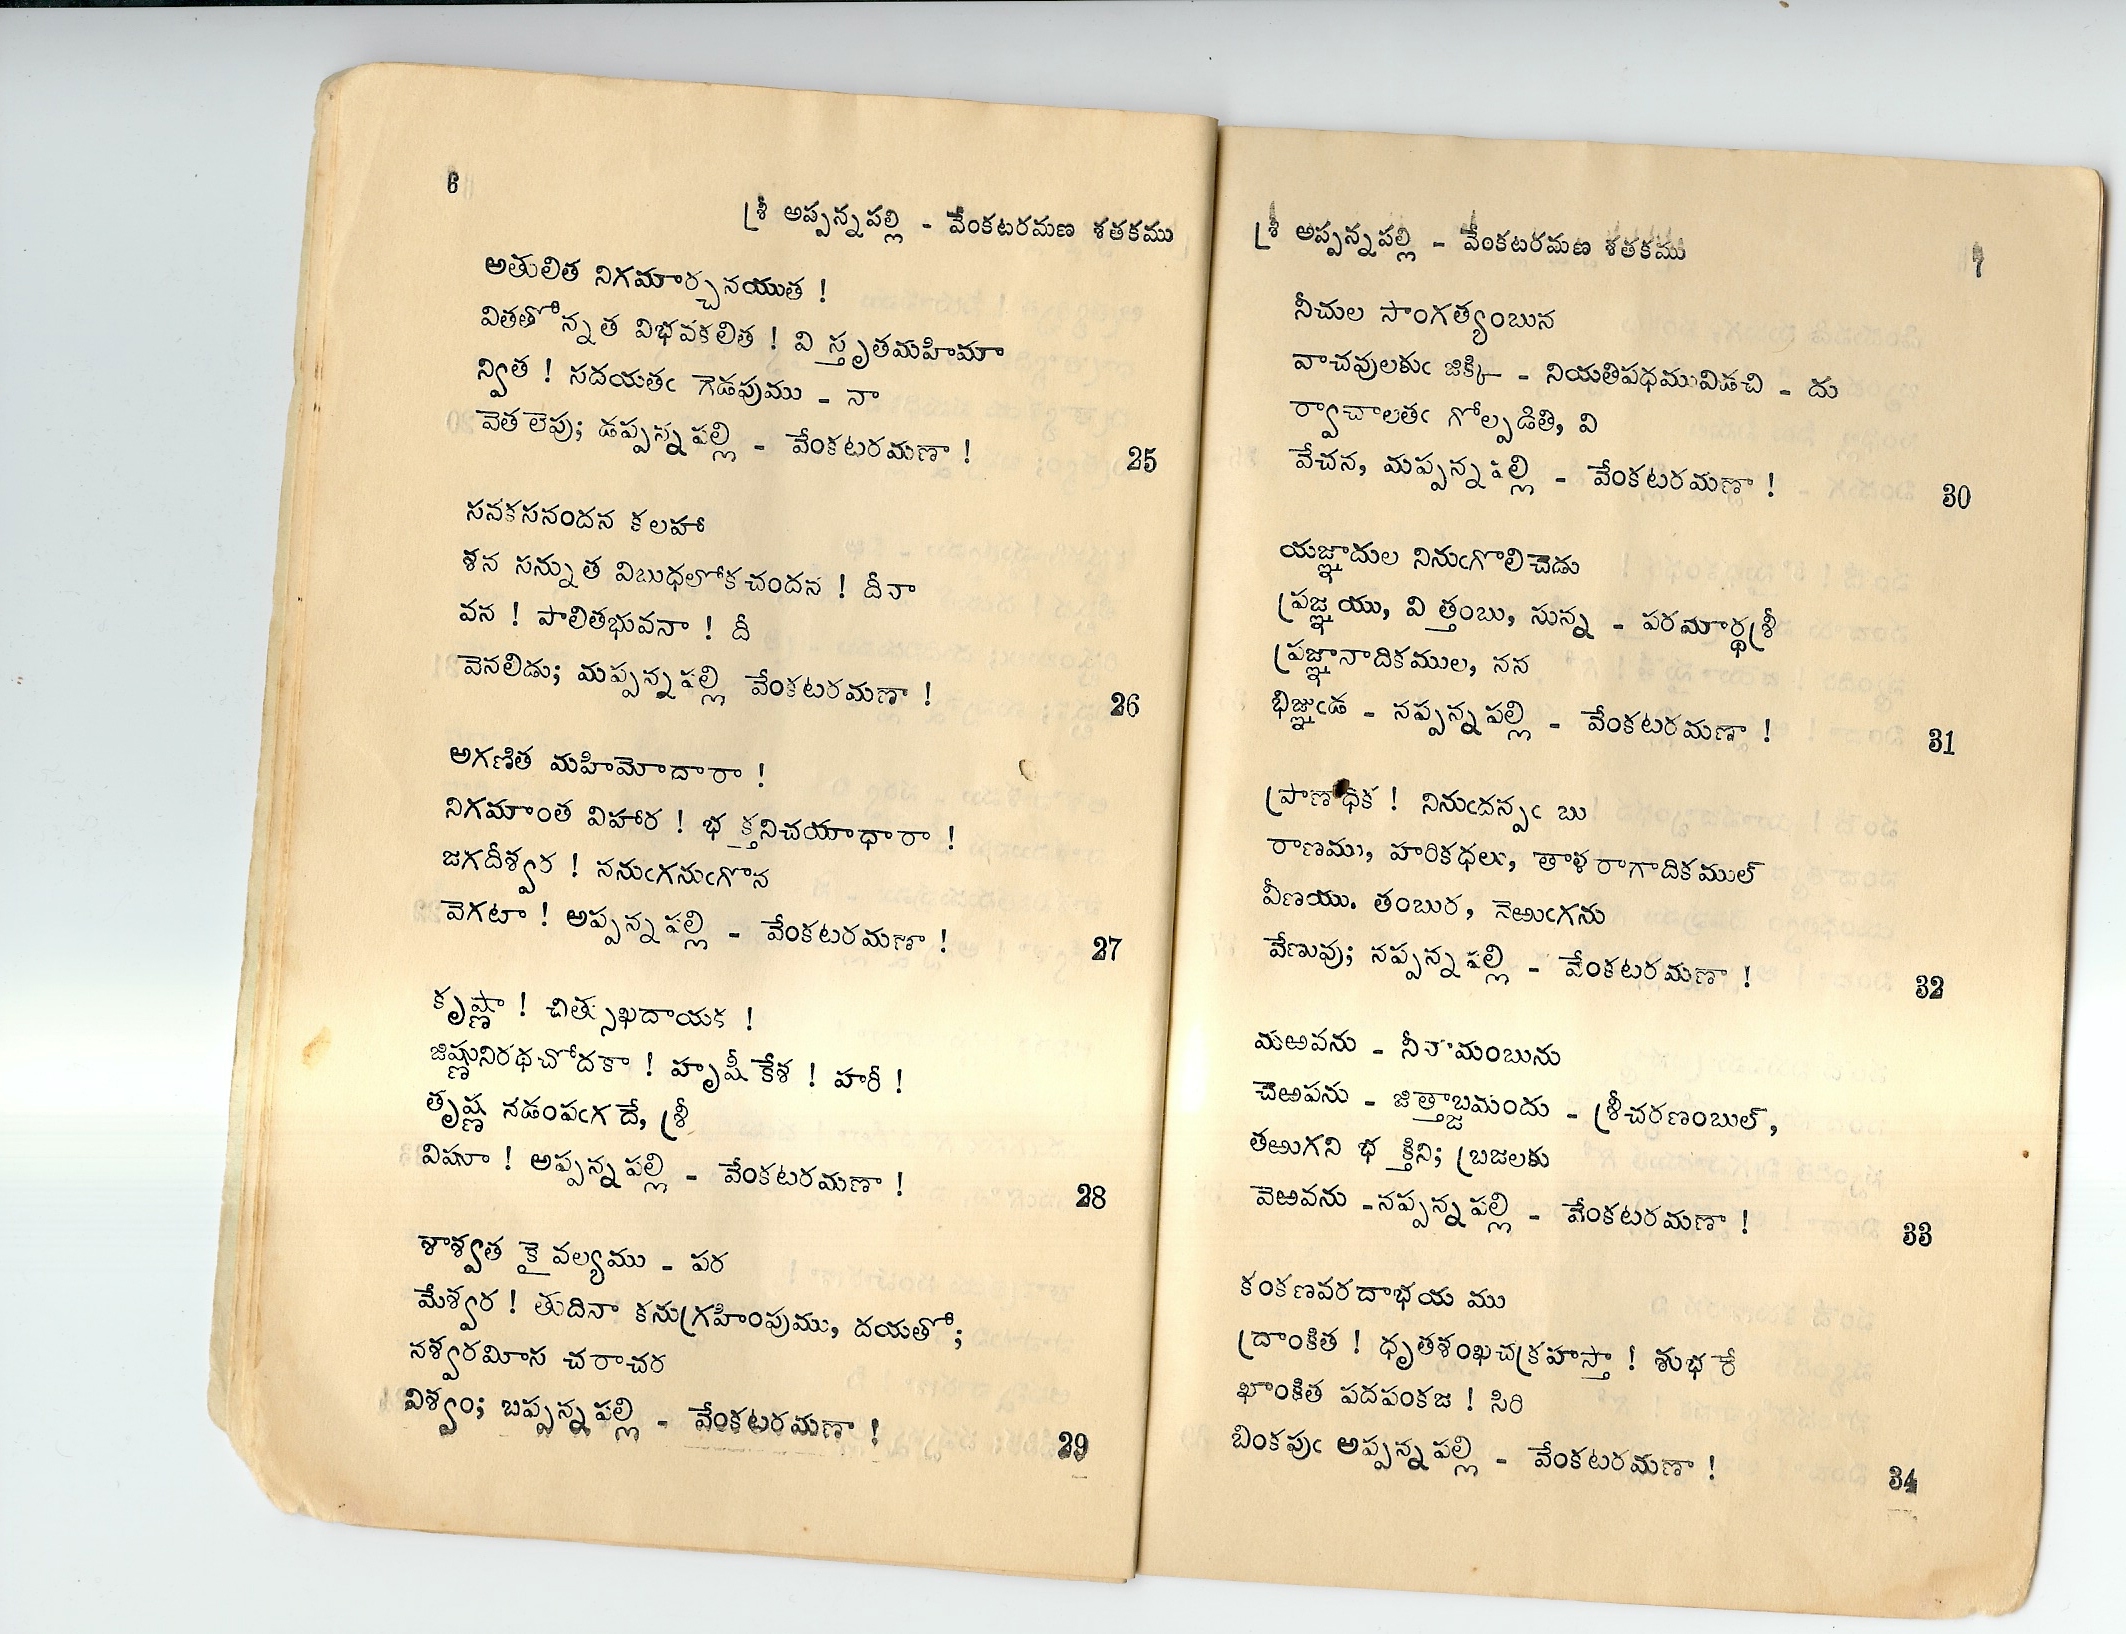 6
శ్రీ అప్పన్నపల్లి - వేంకటరమణ శతకము
అతులిత నిగమార్చనయుత !
వితతోన్నత విభవకలిత ! విస్తృతమహిమా
న్విత ! సదయతఁ గెడపుము - నా
వెతలెపు; డప్పన్నపల్లి - వేంకటరమణా ! 25
సనకసనందన కలహా
శన సన్నుత విబుధలోకచందన ! దీనా
వన ! పాలితభువనా ! దీ
వెనలిడు; మప్పన్నపల్లి వేంకటరమణా ! 26
అగణిత మహిమోదారా !
నిగమాంత విహార ! భక్తనిచయాధారా !
జగదీశ్వర ! ననుఁగనుఁగొన
వెగటా ! అప్పన్నపల్లి - వేంకటరమణా ! 27
కృష్ణా ! చిత్సుఖదాయక !
జిష్ణునిరథచోదకా ! హృషీకేశ ! హరీ !
తృష్ణ నడంపఁగదే, శ్రీ
విష్ణూ ! అప్పన్నపల్లి - వేంకటరమణా ! 28
శాశ్వత కైవల్యము - పర
మేశ్వర ! తుదినా కనుగ్రహింపుము, దయతో;
నశ్వరమీాస చరాచర
విశ్వం; బప్పన్నపల్లి - వేంకటరమణా ! 29
శ్రీ అప్పన్నపల్లి - వేంకటరమణ శతకము
7
నీచుల సాంగత్యంబున
వాచవులకుఁ జిక్కి - నియతిపథమువిడచి - దు
ర్వాచాలతఁ గోల్పడితి, వి
వేచన, మప్పన్నపల్లి - వేంకటరమణా ! 30
యజ్ఞాదుల నినుఁగొలిచెడు
ప్రజ్ఞయు, విత్తంబు, సున్న - పరమార్థశ్రీ
ప్రజ్ఞానాదికముల, నన
భిజ్ఞుఁడ - నప్పన్నపల్లి - వేంకటరమణా ! 31
ప్రాణాధిక ! నినుఁదన్పఁ బు
రాణము, హరికథలు, తాళరాగాదికముల్
వీణయు. తంబుర, నెఱుఁగను
వేణువు; నప్పన్నపల్లి - వేంకటరమణా ! 32
మఱవను - నీనామంబును
చెఱపను - జిత్తాబ్జమందు - శ్రీచరణంబుల్,
తఱుగని భక్తిని; బ్రజలకు
వెఱవను -నప్పన్నపల్లి - వేంకటరమణా ! 33
కంకణవరదాభయ ము
ద్రాంకిత ! ధృతశంఖచక్రహస్తా ! శుభ రే
ఖాంకిత పదపంకజ ! సిరి
బింకపుఁ అప్పన్నపల్లి - వేంకటరమణా ! 34